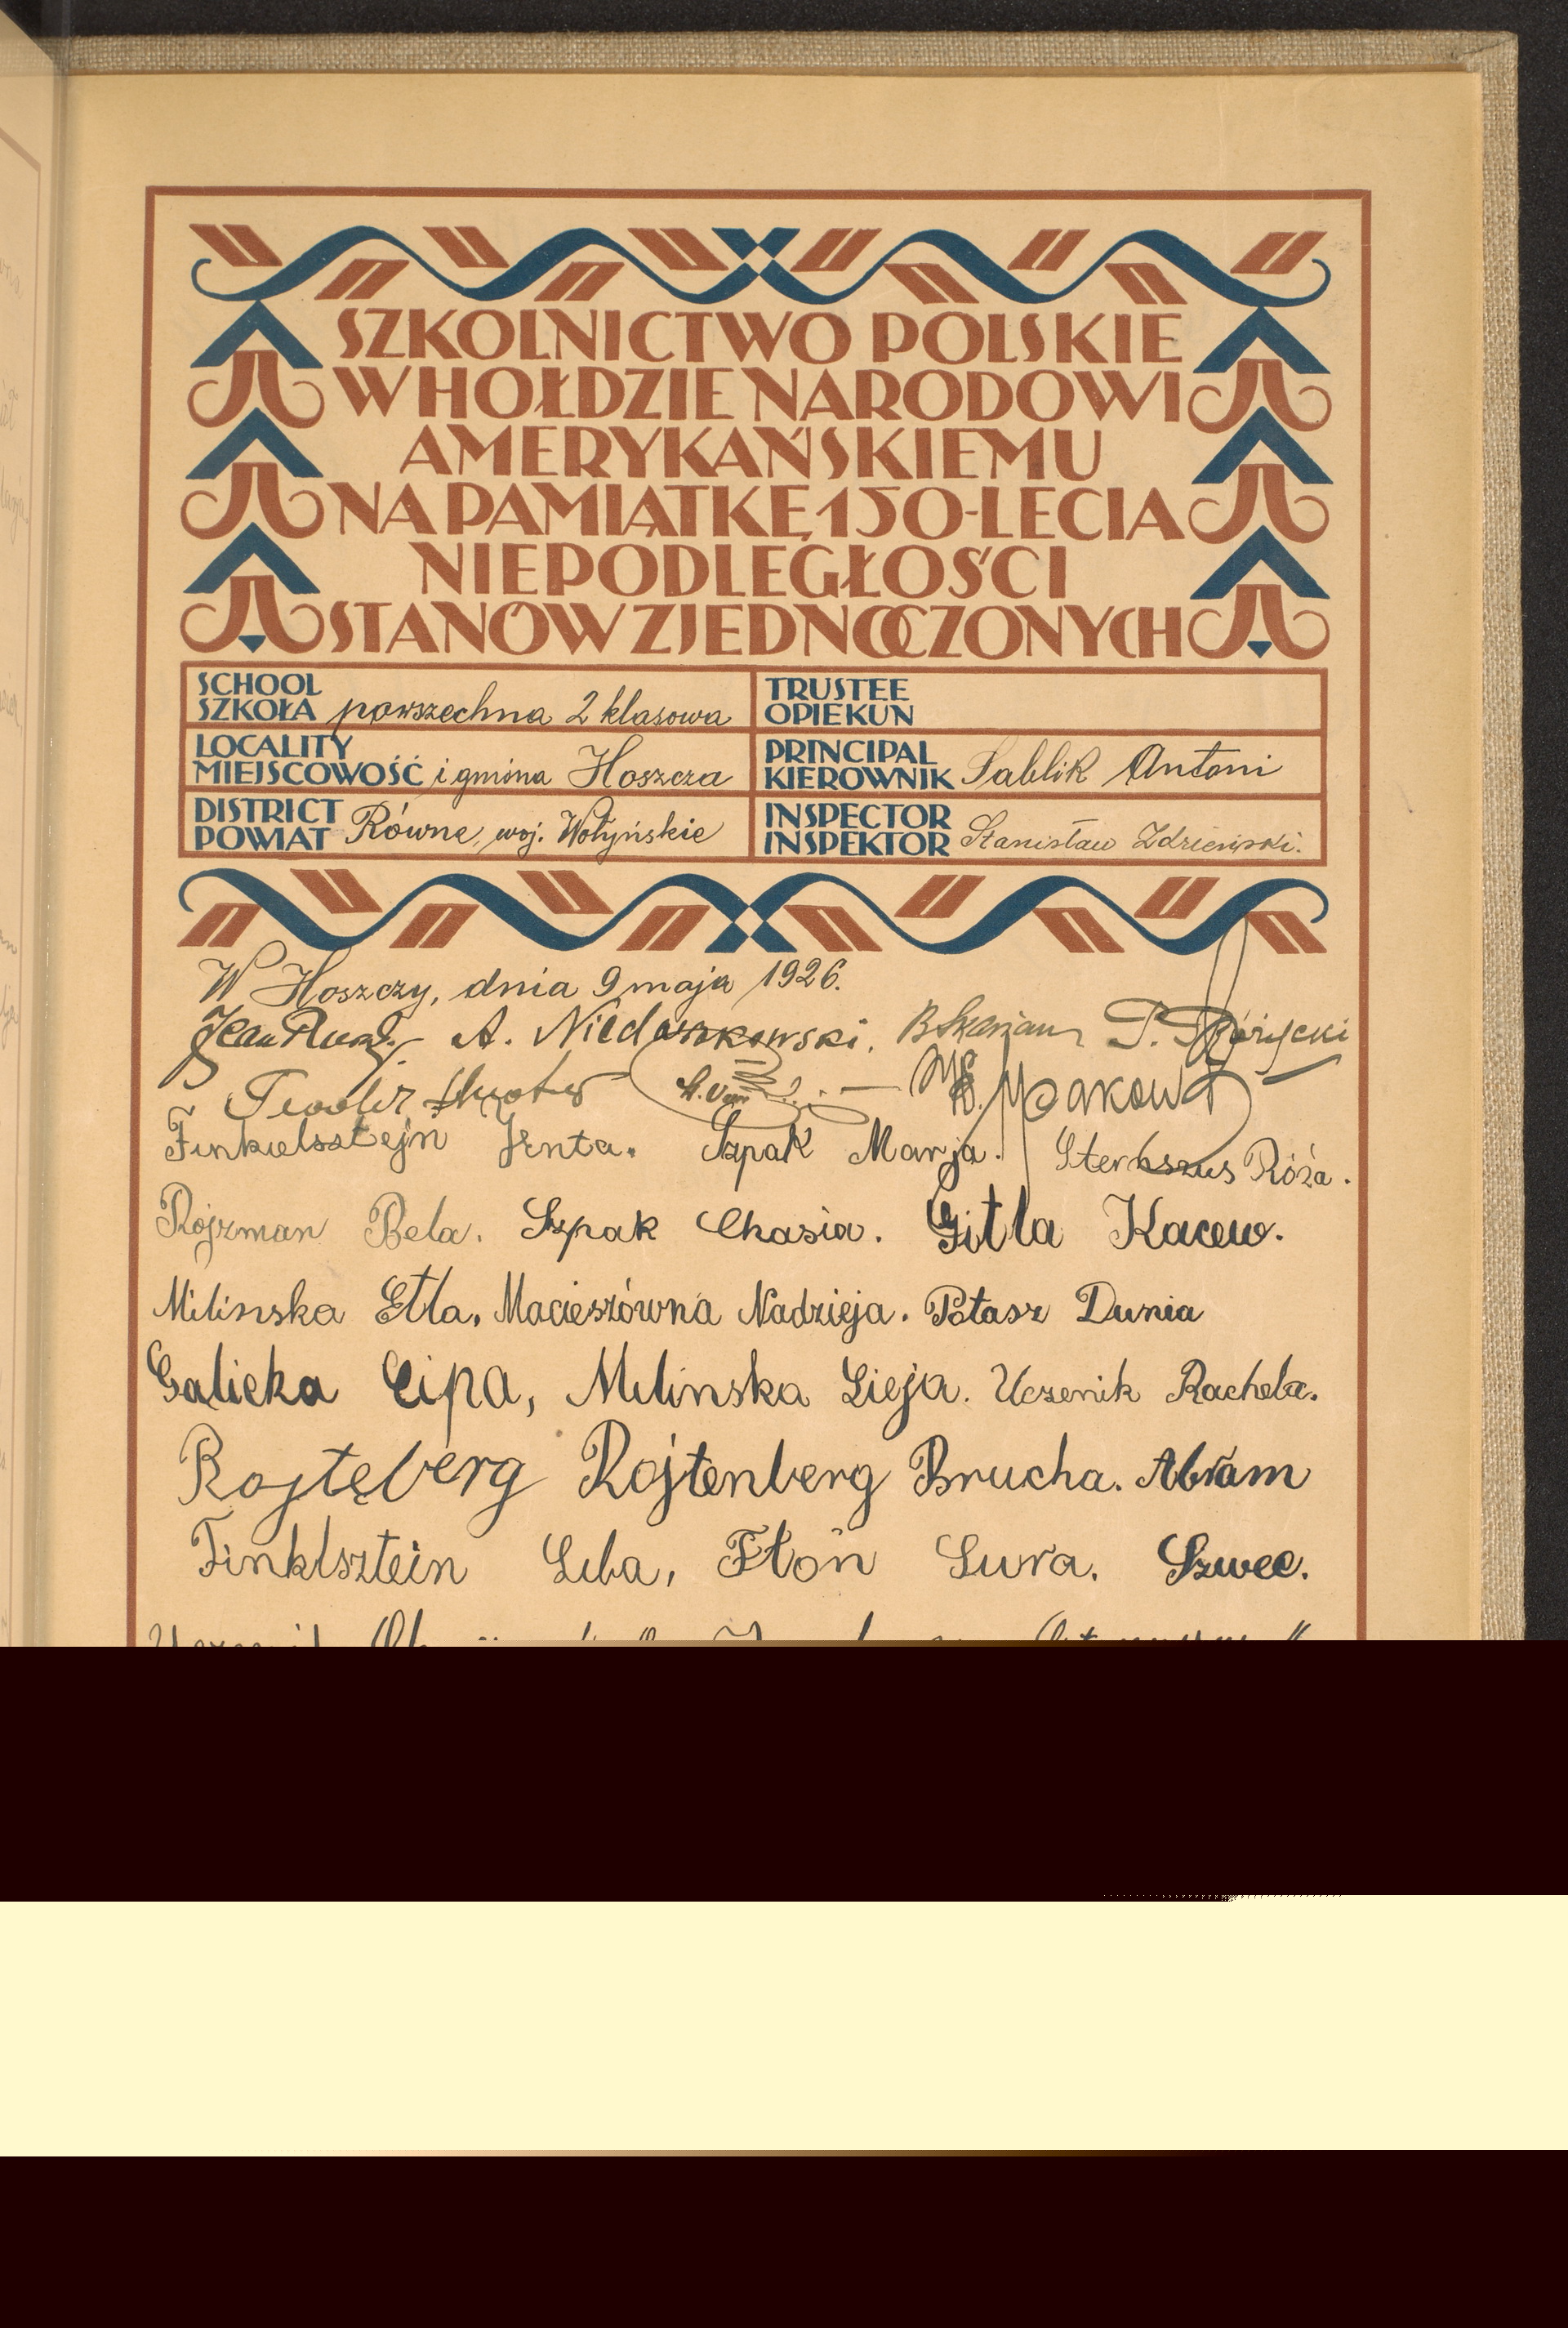 SZKOLNICTWO POLSKIE
W HOŁDZIE NARODOWI
AMERYKAŃSKIEMU
NA PAMIĄTKĘ 150-LECIA
NIEPODLEGŁOŚCI
STANÓW ZJEDNOCZONYCH
SCHOOL
SZKOŁA powszechna 2 klasowa
TRUSTEE
OPIEKUN
LOCALITY
MIEJSCOWOŚĆ i gmina Hoszcza
PRINCIPAL
KIEROWNIK Sablik Antoni
DISTRICT
POWIAT Równe, woj. Wołyńskie
INSPECTOR
INSPEKTOR Stanisław
W Hoszczy, dnia 9 maja 1926.
A. Niedaszkowski.
Finkielsztejn Jenta. Szpak Marja. Róża.
Rojzman Bela. Szpak Chasia. Gitla Kacew.
Milinska Etla. Macieszówna Nadzieja. Potasz Dunia
Galicka Cipa, Milinska Sieja. Uczenik Rachela.
Rojtęberg Rojtenberg Brucha. Abram
Finklsztein Liba, Fłon Sura. Szwec.